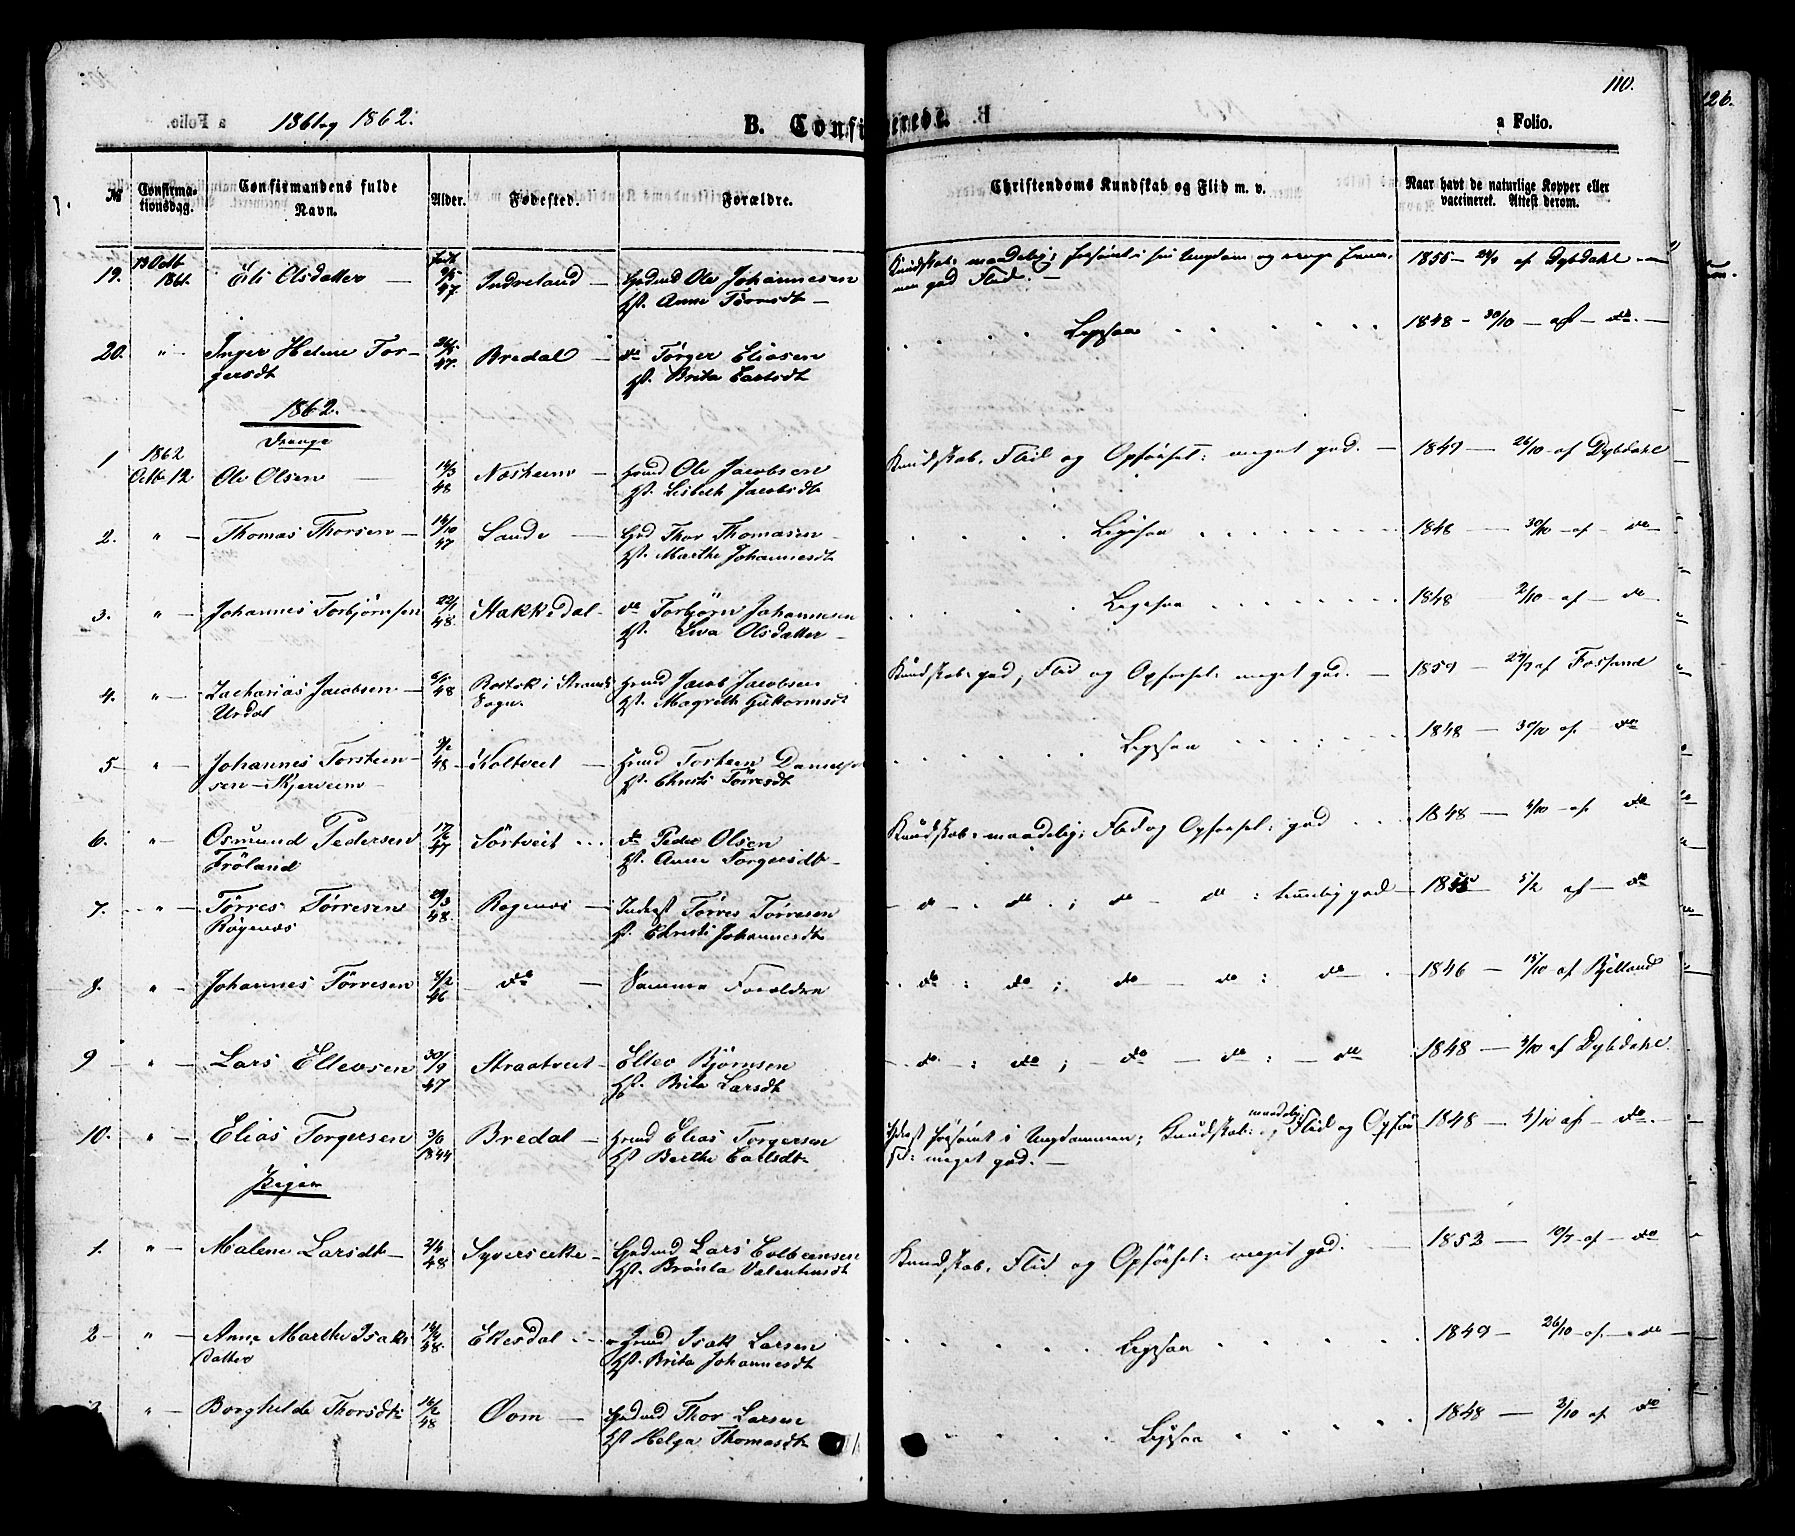 110.
126.
1861 og 1862.
B. Confirmerede.
a Folio.
№
Confirma-
tionsdag.
Confirmandens fulde
Navn.
Alder.
Fødested.
Forældre.
Christendoms Kundskab og Flid m. v.
Naar havt de naturlige Kopper eller
vaccineret. Attest derom.
19. 13 Octb 1861. Eli Olsdatter 47. Indreland Grdmd Ole Johannesen
Hst. Anne
god Flid.
1855 af Dybdahl
20. " Inger Helene Tor-
gersdt
47. Bredal do Törger Eliasen
Hst. Brita Carlsdt
Ligesaa 1848 - 30/10 - af - do
1862.
Drenge
1 1862 Octb 12 Ole Olsen 14/3 48 Nösheim Grmd Ole Jacobsen
Hst. Lisbeth Jacobsdt
Kundskab, Flid og Opförsel: meget god. 1847 - 26/10 af Dybdahl
2. " Thomas Thorsen 14/10 47 Sande Thor Thomasen
Hst. Marthe Johannesdt
Ligesaa 1848 30/10 - af - do
3. " Johannes Torbjörnsen 22/1 48. Stakkedal do Torbjörn Johannesen
Hst. Siva Olsdatter
Ligesaa 1848 2/10 af - do
4. " Zacharias Jacobsen
Urdal
48 i Strands
Sogn.
Grmd Jacob Jacobsen
Hst. Magrethe Guttormsdt
Kundskab: god, Flid og Opförsel: meget god. 1859 af Fossand
5 " Johannes Torsteen-
sen Skjerveim
9/2 48 Koltveit Grmd Torsteen Danielsen
Hst. Christi Törresdt
Ligesaa 1848 30/10 af. do
6. " Osmund Pedersen
Fröland
17/6 47 Sörtveit do Peder Olsen
Hst. Anne Torgersdt
Kundskab: maadelig; Flid og Opförsel: god 1848 4/10 af. do
7. " Törres Törresen
Rögenes
29/3 48. Rogenes Inderst Törres Törresen
H. Christi Johannesdt
do do ; do do : temmelig god 1855 5/2 af do
8. " Johannes Törresen 8/2 46 do Samme Forældre
do : do ; do do : do 1846 - 15/10 af Bjelland
9 " Lars Ellevsen 30/9 47 Straatveit Ellev Björnsen
Hst. Brita Larsdt
do : do ; do do : do 1848 4/10 af Dybdahl.
10. " Elias Torgersen 1844 Bredal Grmd Elias Torgersen
Hst Berthe Carlsdt
forsömt i Ungdommen; Kundskab: maadelig Flid og Opför-
sel: meget god.
1848 4/10 af do
Piger
1. " Malene Larsdt 2/4 48 Syversætre Grdmd Lars Colbeensen
Hst. Brönla Valentinsdt
Kundskab, Flid og Opförsel: meget god. 1853 10/7 af do
2 " Anne Marthe Isaks
datter
14/4 48. Ekesdal Grmd Isak Larsen
Hst. Brita Johannesdt
Ligesaa 1849 26/10 af. do
" Borghilde Thorsdt 16/2 48 Öom Grdmd Thor Larsen
Hst Helga Thomasdt
Ligesaa 1848 2/10 af do